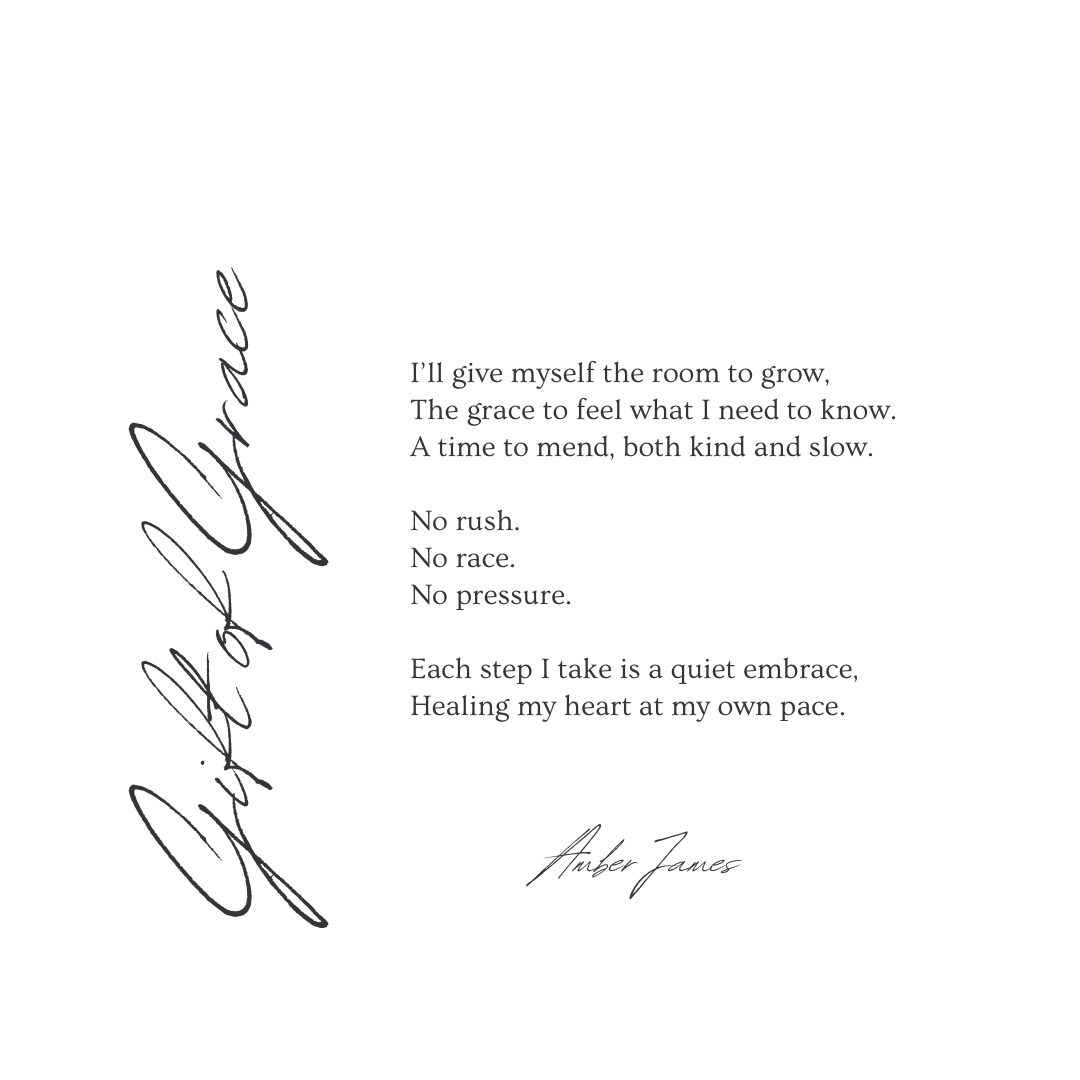 Gift of Grace
I’ll give myself the room to grow,
The grace to feel what I need to know.
A time to mend, both kind and slow.
No rush.
No race.
No pressure.
Each step I take is a quiet embrace,
Healing my heart at my own pace.
Amber James